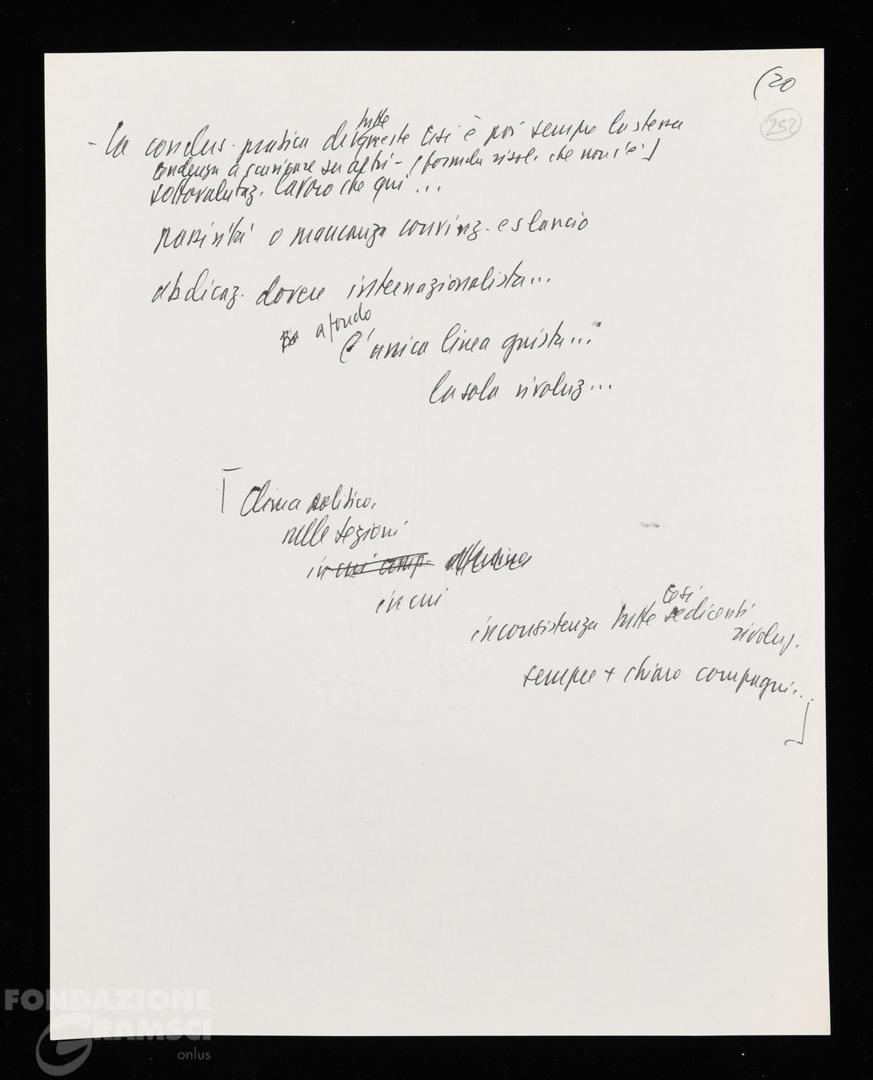 (20
252
- La conclus. pratica di tutte queste tesi è poi sempre la stessa
tendenza a scaricare su altri - (formula risol. che non c'è!)
sottovalutaz. lavoro che qui...
passività o mancanza convinz. e slancio
abdicaz. dovere internazionalista...
a fondo
È unica linea giusta...
la sola rivoluz...
Clima politico.
nelle sezioni
in cui
inconsistenza tutte tesi sedicenti
rivoluz.
sempre + chiaro compagni...
FONDAZIONE
GRAMSCI
onlus